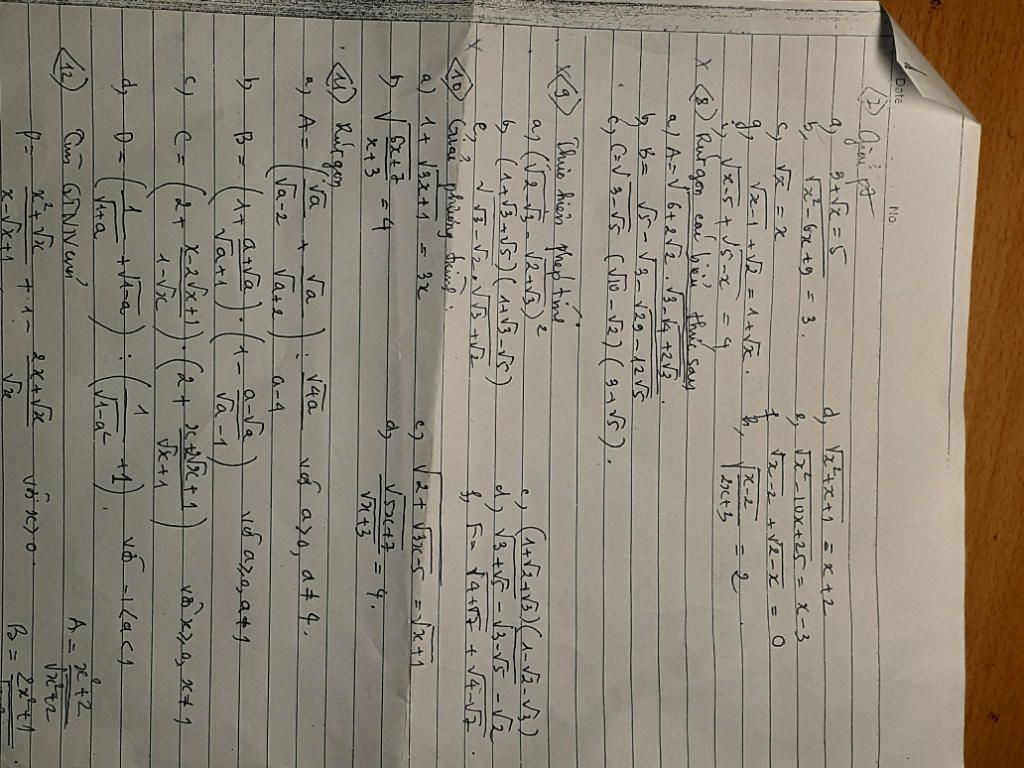 Date
No
<7> Giải pt
a, 3+√x = 5
d, √(x²+x+1) = x+2
b, √(x²-6x+9) = 3.
e, √(x²-10x+25) = x-3
c, √x = x
f, √(x-2) + √(2-x) = 0
g, √(x-1) + √2 = 1+√x.
h, √((x-2)/(2x+3)) = 2
i, √(x-5) + √(5-x) = 9
x <8> Rút gọn các biểu thức sau
a, A = √(6+2√2.√(3-√(4+2√3)))
b, B = √(√5 - √(3-√(29-12√5)))
c, C = √(3-√5) (√10-√2)(3+√5).
x <9> Thực hiện phép tính
a, (√(2-√3) - √(2+√3))²
c, (1+√2+√3)(1-√2-√3)
b, (1+√3+√5)(1+√3-√5)
d, √(3+√5) - √(3-√5) - √2
e, √(√3-√2) . √(√3+√2)
f, F = √(4+√7) + √(4-√7).
x <10> Giải phương trình.
a) 1+√(3x+1) = 3x
c, √(2+√(3x-5)) = √(x+1)
b, √((5x+7)/(x+3)) = 4
d, √(5x+7)/√(x+3) = 4.
<11> Rút gọn
a, A = (√a/(√a-2) + √a/(√a+2)) : √(4a)/(a-4) với a>0, a≠4.
b, B = (1 + (a+√a)/(√a+1)) . (1 - (a-√a)/(√a-1)) với a≥0, a≠1
c, C = (2 + (x-2√x+1)/(1-√x)) . (2 + (x+2√x+1)/(√x+1)) với x≥0, x≠1
d, D = (1/√(1+a) + √(1-a)) : (1/√(1-a²) + 1) với -1<a<1
<12> Tìm GTNN của
P = (x²+√x)/(x-√x+1) + 1 - (2x+√x)/√x với x>0
A = (x²+2)/√(x²+2)
B = 2x²+1